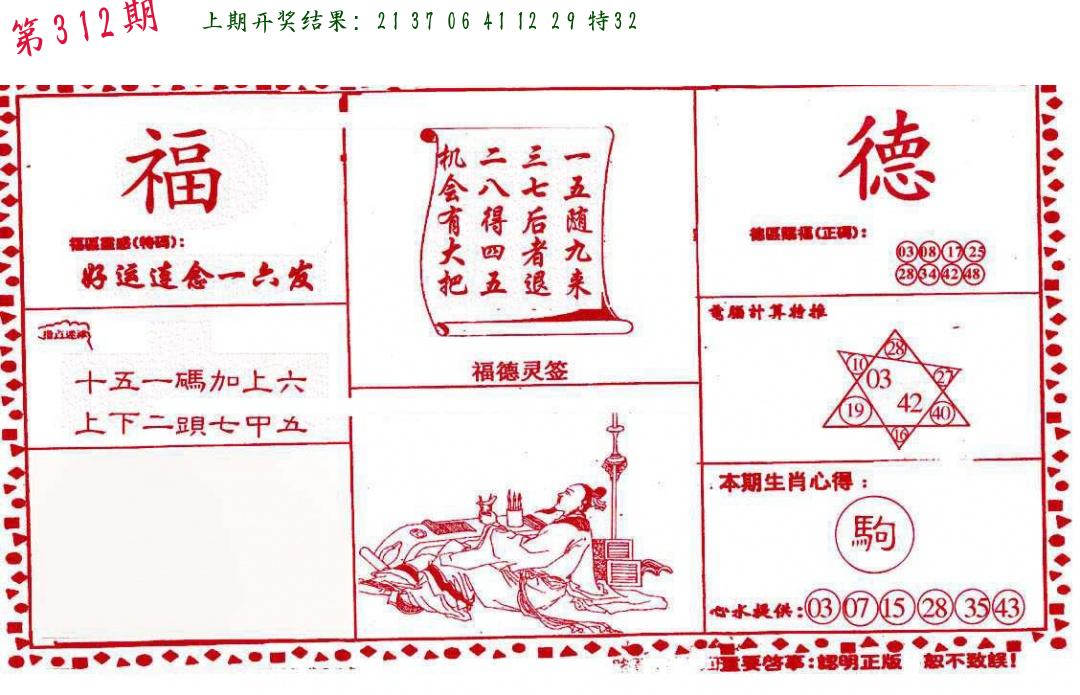 第312期
上期开奖结果：21 37 06 41 12 29 特32
福
福區靈感(特碼)：
好运连念一六发
十五一碼加上六
上下二頭七甲五
一五随九来
三七后者退
二八得四五
机会有大把
福德灵签
德
德區賜福(正碼)：
03 08 17 25
28 34 42 48
電腦計算特推
28
10 03 27
19 42 40
16
本期生肖心得：
駒
心水提供：03 07 15 28 35 43
重要啓事：認明正版 恕不致誤！